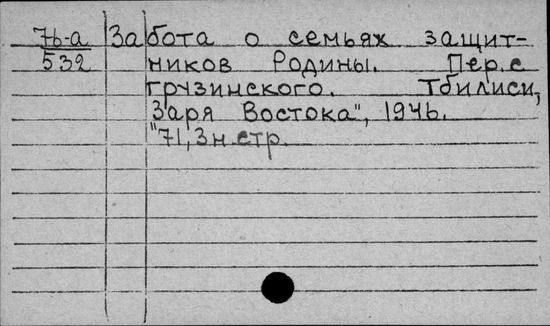 76-а Забота о семьях защит-
532 ников Родины. Пер. с
грузинского. Тбилиси,
Заря Востока", 1946.
"71, 3 н. стр.